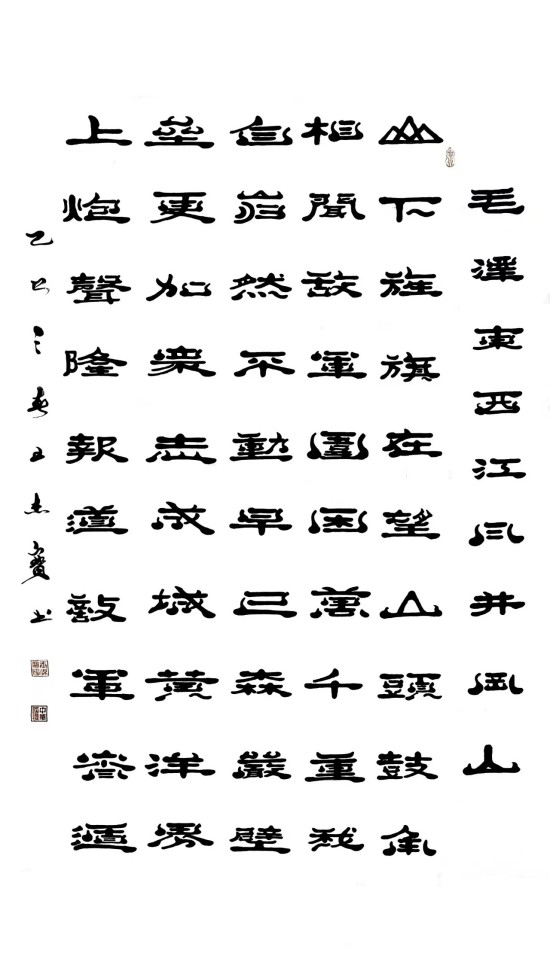 毛澤東西江月井岡山
山下旌旗在望山頭鼓角
相聞敵軍圍困萬千重我
自岿然不動早已森嚴壁
壘更加衆志成城黄洋界
上炮聲隆報道敵軍宵遁
乙巳之春王杰賓书